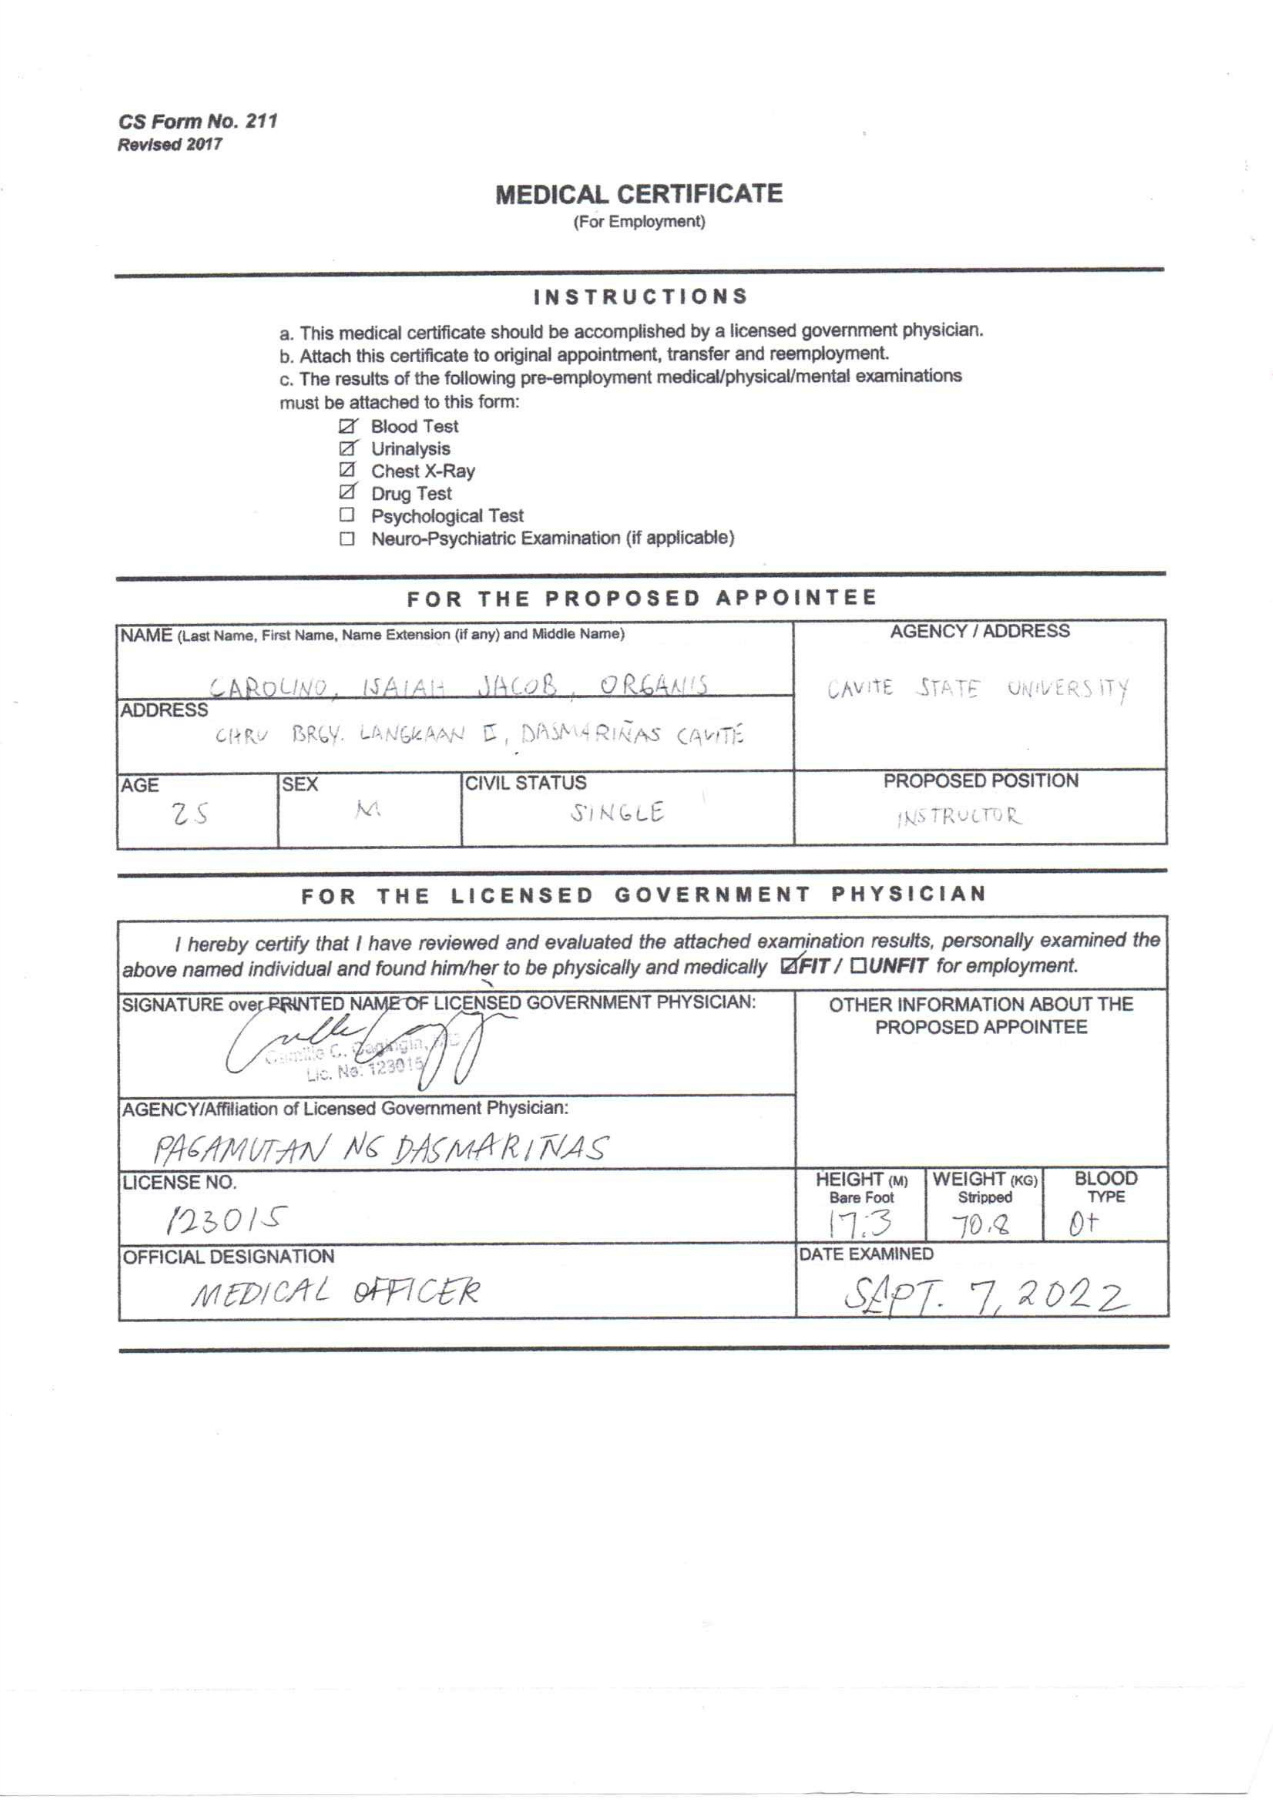 CS Form No. 211
Revised 2017
MEDICAL CERTIFICATE
(For Employment)
INSTRUCTIONS
a. This medical certificate should be accomplished by a licensed government physician.
b. Attach this certificate to original appointment, transfer and reemployment.
c. The results of the following pre-employment medical/physical/mental examinations
must be attached to this form:
☑ Blood Test
☑ Urinalysis
☑ Chest X-Ray
☑ Drug Test
☐ Psychological Test
☐ Neuro-Psychiatric Examination (if applicable)
FOR THE PROPOSED APPOINTEE
NAME (Last Name, First Name, Name Extension (if any) and Middle Name)
CAROLINO, ISAIAH JACOB, ORGANIS
AGENCY / ADDRESS
CAVITE STATE UNIVERSITY
ADDRESS
CHRV BRGY. LANGKAAN II, DASMARIÑAS CAVITE
AGE
25
SEX
M
CIVIL STATUS
SINGLE
PROPOSED POSITION
INSTRUCTOR
FOR THE LICENSED GOVERNMENT PHYSICIAN
I hereby certify that I have reviewed and evaluated the attached examination results, personally examined the
above named individual and found him/her to be physically and medically ☑FIT / ☐UNFIT for employment.
SIGNATURE over PRINTED NAME OF LICENSED GOVERNMENT PHYSICIAN:
Camille C.
Lic. No. 123015
OTHER INFORMATION ABOUT THE
PROPOSED APPOINTEE
AGENCY/Affiliation of Licensed Government Physician:
PAGAMUTAN NG DASMARIÑAS
LICENSE NO.
123015
HEIGHT (M)
Bare Foot
17.3
WEIGHT (KG)
Stripped
70.8
BLOOD
TYPE
O+
OFFICIAL DESIGNATION
MEDICAL OFFICER
DATE EXAMINED
SEPT. 7, 2022